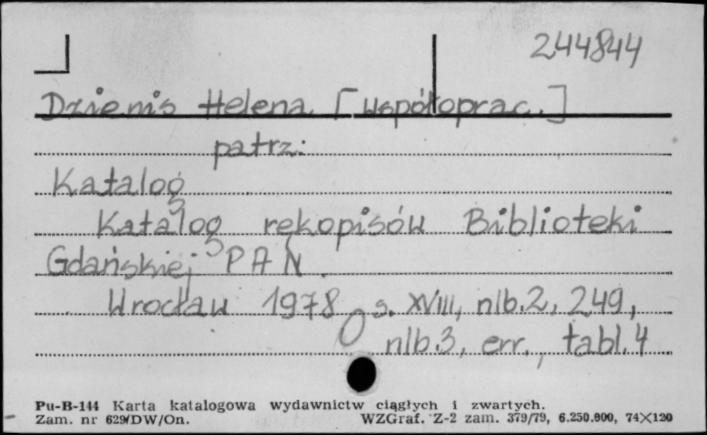 244844
Dzienis Helena [współoprac.]
patrz:
Katalog
Katalog rękopisów Biblioteki
Gdańskiej PAN.
Wrocław 1978 s. XVIII, nlb.2, 249,
nlb.3, err., tabl.4
Pu-B-144 Karta katalogowa wydawnictw ciągłych i zwartych.
Zam. nr 629/DW/On. WZGraf. Z-2 zam. 379/79, 6.250.000, 74×120